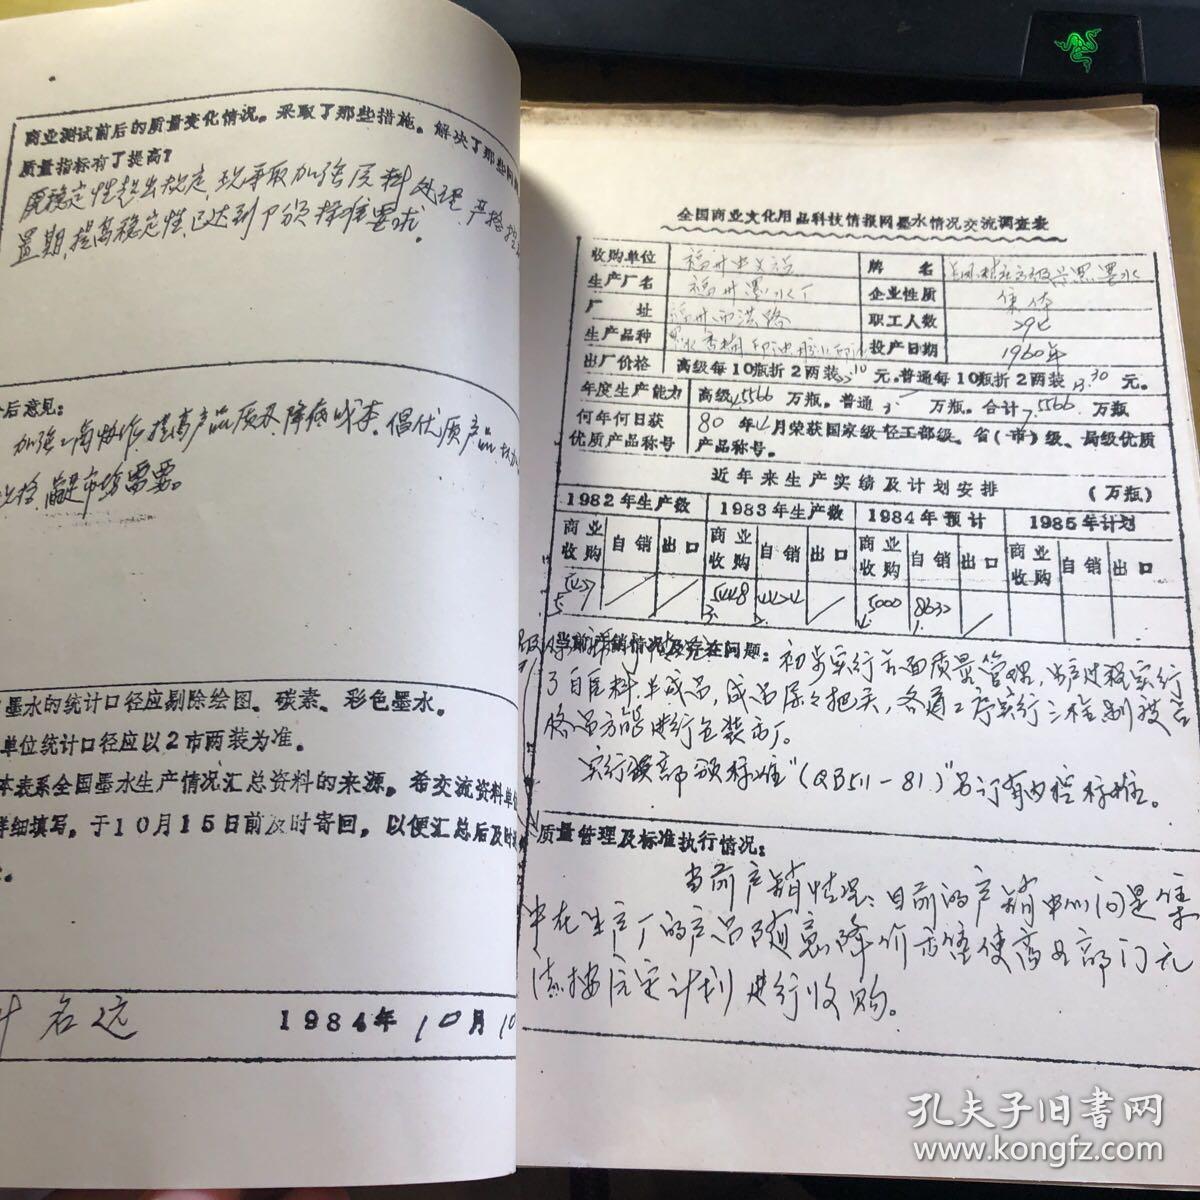 商业测试前后的质量变化情况。采取了那些措施。解决了那些问
质量指标有了提高?
稳定性超出规定,现采取加强原料处理,严格控
置期,提高稳定性,已达到部颁标准要求。
后意见:
加强工商协作,提高产品质量,降低成本,倡优质产品,
满足市场需要。
墨水的统计口径应剔除绘图、碳素、彩色墨水。
单位统计口径应以2市两装为准。
本表系全国墨水生产情况汇总资料的来源。希交流资料单
详细填写,于10月15日前及时寄回,以便汇总后及时
名远 1984年10月10
全国商业文化用品科技情报网墨水情况交流调查表
收购单位 福州 牌名 高级 黑墨水
生产厂名 福州墨水厂 企业性质 集体
厂址 福州西洪路 职工人数
生产品种 墨水 印油 投产日期 1960年
出厂价格 高级每10瓶折2两装 .10元。普通每10瓶折2两装 .30元。
年度生产能力 高级 5566万瓶。普通3. 万瓶。合计7.5566万瓶
何年何日获优质产品称号 80年 月荣获国家级轻工部级、省(市)级、局级优质产品称号。
近年来生产实绩及计划安排 (万瓶)
1982年生产数 1983年生产数 1984年预计 1985年计划
商业收购 自销 出口 商业收购 自销 出口 商业收购 自销 出口 商业收购 自销 出口
当前产销情况及存在问题:初步实行全面质量管理,生产过程实行
了自原料、半成品、成品层层把关,各道工序实行三检制度合
格品方能进行包装出厂。
实行颁部颁标准“(QB511-81)”另订有内控标准。
质量管理及标准执行情况:
当前产销情况:目前的产销中心问题是集
中在生产厂的产品随意降价 使商业部门无
法按原定计划进行收购。
孔夫子旧书网
www.kongfz.com